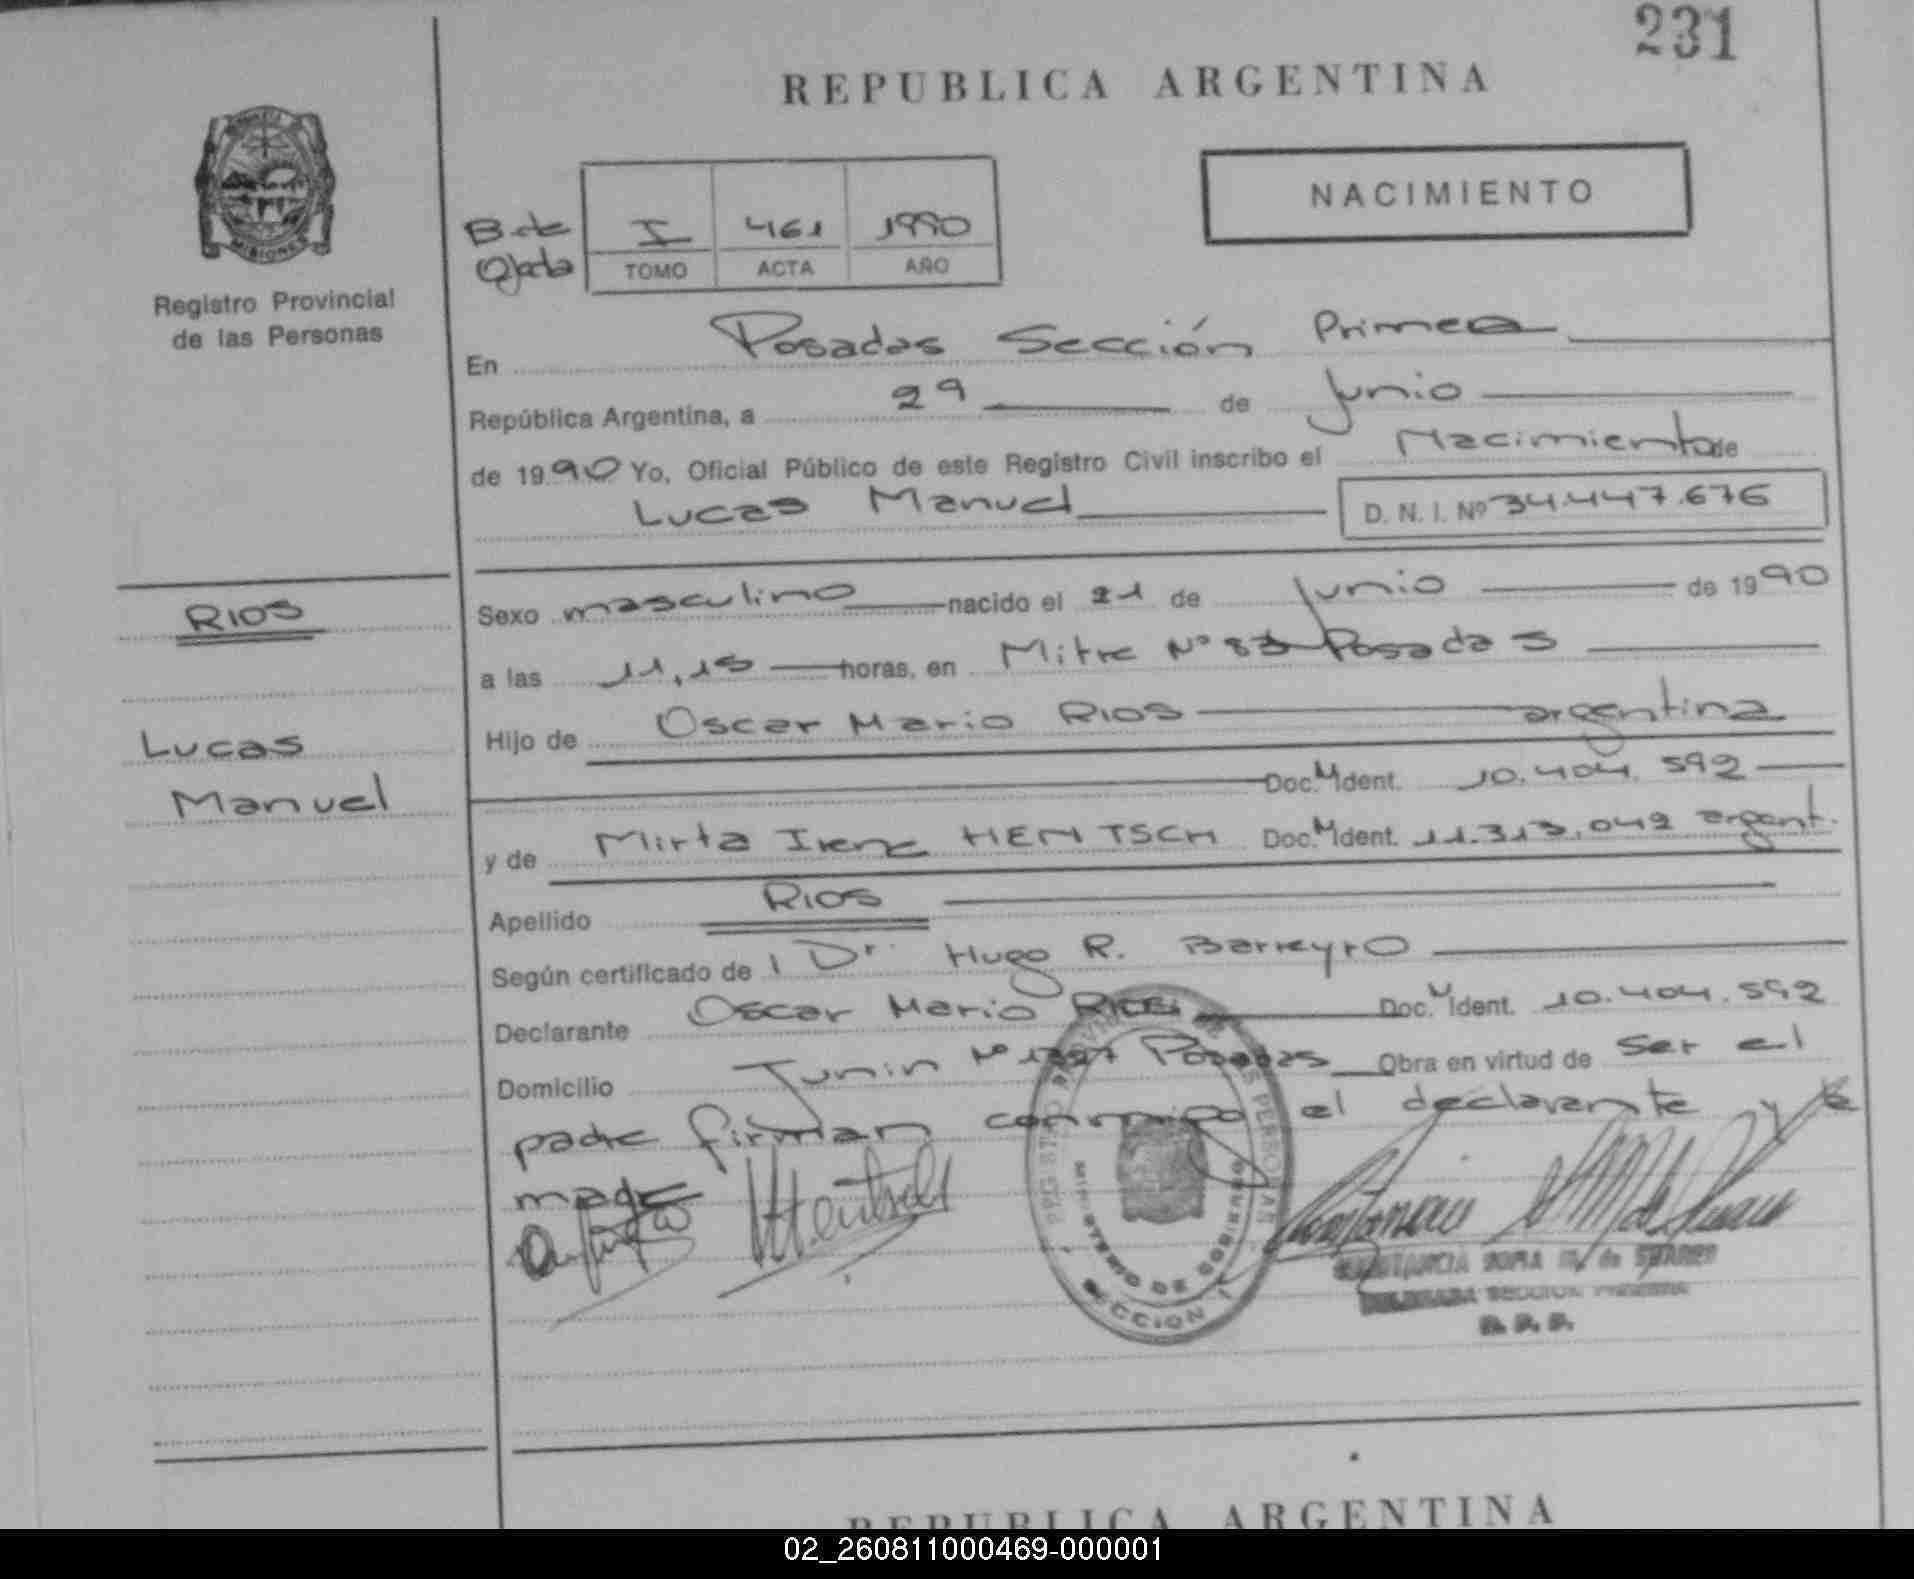 231
REPUBLICA ARGENTINA
NACIMIENTO
I 461 1990
TOMO ACTA AÑO
MISIONES
Registro Provincial
de las Personas
En Posadas Sección Primera
República Argentina, a 29 de Junio
de 1990 Yo, Oficial Público de este Registro Civil inscribo el Nacimiento de
Lucas Manuel D. N. I. Nº 34.447.676
RIOS
Lucas
Manuel
Sexo masculino nacido el 21 de Junio de 1990
a las 11,15 horas, en Mitre Nº Posadas
Hijo de Oscar Mario RIOS argentina
Doc. M Ident. 10.404.592
y de Mirta Irene HENTSCH Doc. M Ident. 11.313.042 argent.
Apellido RIOS
Según certificado de Dr. Hugo R. Barreyro
Declarante Oscar Mario RIOS Doc. M Ident. 10.404.592
Domicilio Junin Nº Posadas Obra en virtud de Ser el
padre firman conmigo el declarante y la
madre
MINISTERIO DE GOBIERNO
SECCION 1
CONSTANCIA SOFIA M. de SUAREZ
DELEGADA SECCION PRIMERA
R. P. P.
REPUBLICA ARGENTINA
02_260811000469-000001